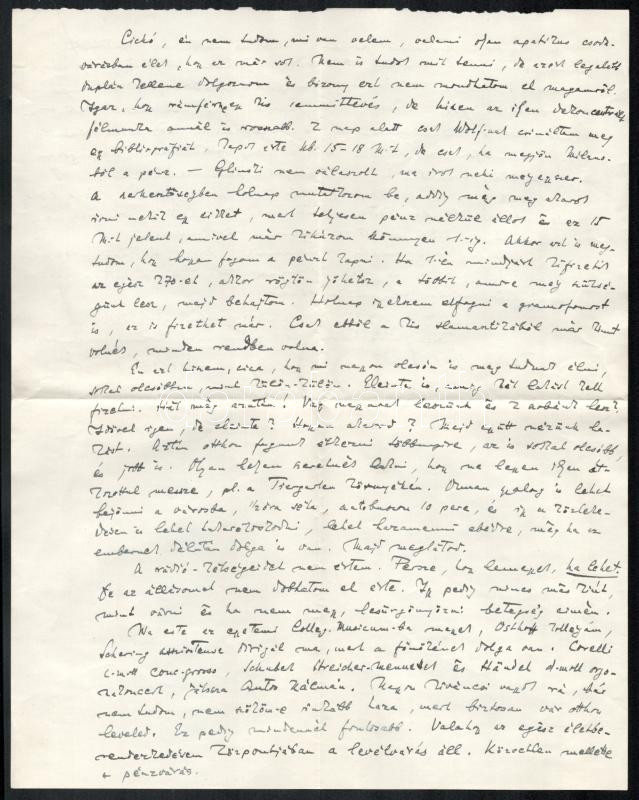 Cickó, én nem tudom, mi van velem, valami olyan apatikus csoda-
várásban élek, hogy ez már sok. Nem is tudok mit tenni, de azért legalább
duplán kellene dolgoznom és bizony ezt nem mondhatom el magamról.
Igaz, hogy rámfér egy kis semmittevés, de hiszen az ilyen
félmunka annál is rosszabb. 2 nap alatt csak csináltam meg
egy bibliográfiát, kapok érte kb. 15-18 M-t, de csak, ha megjön Milano-
ból a pénz. — Glinski nem válaszolt, ma írok neki mégegyszer.
A holnap be, addig még meg akarok
írni nekik egy cikket, mert teljesen pénz nélkül állok és ez 15
M-t jelent, amivel már kihúzom könnyen 1-ig. Akkor azt is meg-
tudom, hogy hogyan fogom a pénzt kapni. Ha 1-én mindjárt kifizetik
az egész 270-et, akkor rögtön jöhetsz, a többit, amire még szüksé-
günk lesz, majd behajtom. Holnap igyekszem elfogni a gramofonost
is, ez is fizethet már. Csak ebből a kis már
volnék, minden rendben volna.
Én azt hiszem, cica, hogy mi nagyon olcsón is meg tudunk élni,
sokkal olcsóbban, mint külön-külön. Eleinte is, amíg két lakást kell
fizetni. Hát még azután! Vagy nagynak lesz?
igen, de eleinte? Hogyan akarod? Majd együtt nézünk la-
kást. Aztán otthon fogunk étkezni többnyire, az is sokkal olcsóbb,
és jobb is. Olyan helyen szeretnék lakni, hogy ne legyen ilyen át-
kozottul messze, pl. a Tiergarten környékén. Onnan gyalog is lehet
bejönni a városba, ½ óra séta, autobuszon 10 perc, és így a közleke-
désen is lehet takarékoskodni, lehet hazamenni ebédre, még ha az
embernek délután dolga is van. Majd meglátod.
A rádió-kétségeidet nem értem. Persze, hogy lemegyek, ha lehet.
De az állásomat nem dobhatom el érte. Így pedig nincs más hátra,
mint várni és ha nem megy, lesürgönyözni betegség címén.
Ma este az egyetemi Colleg. Musicum-ba megyek, Osthoff kollegám,
Schering assistense dirigál ma, mert a főnökének dolga van. Corelli
c-moll conc. grosso, Schubert Streicher-Menuette és Händel d-moll orgo-
nakoncert, játssza Antos Kálmán. Nagyon kíváncsi vagyok rá, bár
nem tudom, nem szököm-e inkább haza, mert biztosan vár otthon
leveled. Ez pedig mindennél fontosabb. Valahogy az egész életbe-
rendezkedésem központjában a levélvárás áll. Közvetlen mellette
a pénzvárás.